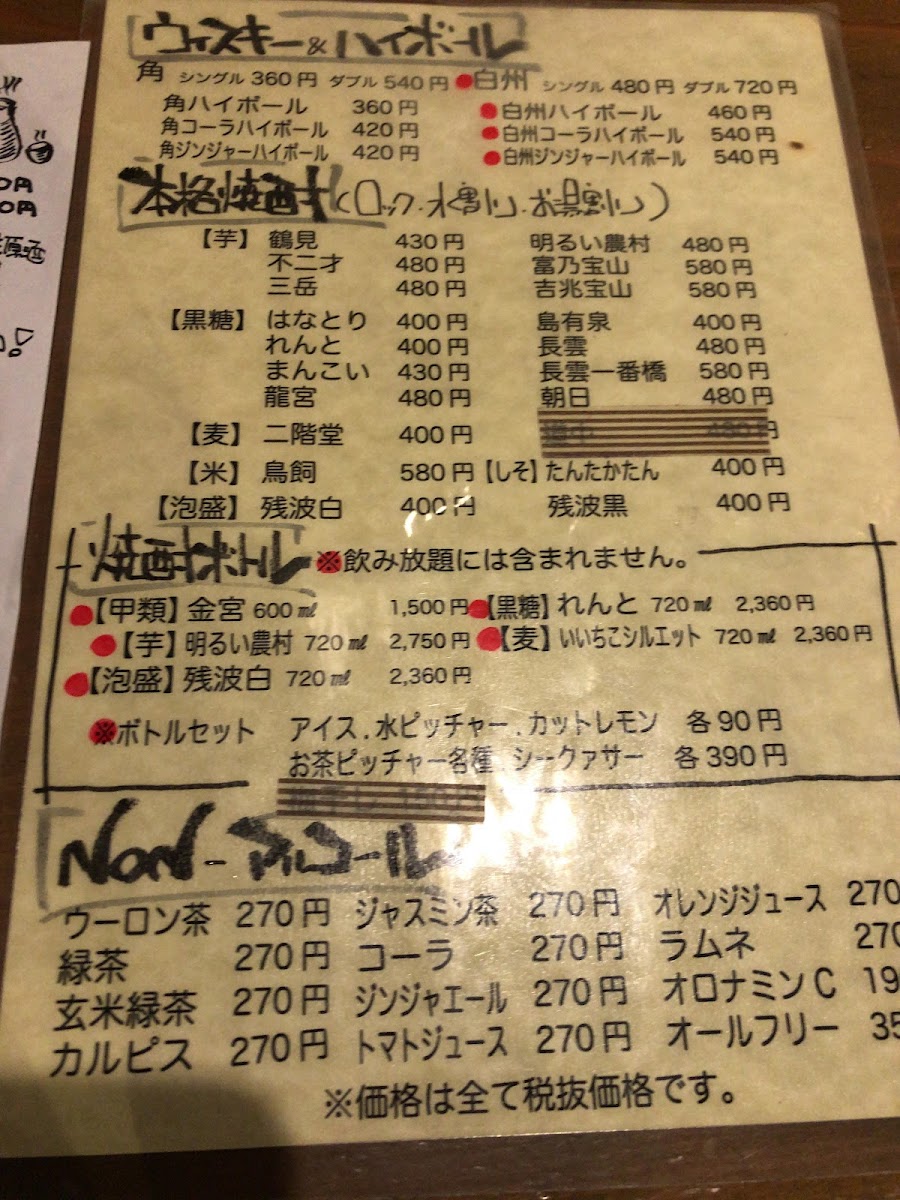 ウィスキー&ハイボール
角 シングル 360円 ダブル 540円 ●白州 シングル 480円 ダブル 720円
角ハイボール 360円 ●白州ハイボール 460円
角コーラハイボール 420円 ●白州コーラハイボール 540円
角ジンジャーハイボール 420円 ●白州ジンジャーハイボール 540円
本格焼酎(ロック・水割り・お湯割り)
【芋】 鶴見 430円 明るい農村 480円
不二才 480円 富乃宝山 580円
三岳 480円 吉兆宝山 580円
【黒糖】 はなとり 400円 島有泉 400円
れんと 400円 長雲 480円
まんこい 430円 長雲一番橋 580円
龍宮 480円 朝日 480円
【麦】 二階堂 400円
【米】 鳥飼 580円 【しそ】たんたかたん 400円
【泡盛】 残波白 400円 残波黒 400円
焼酎ボトル ※飲み放題には含まれません。
●【甲類】金宮 600㎖ 1,500円 ●【黒糖】れんと 720㎖ 2,360円
●【芋】明るい農村 720㎖ 2,750円 ●【麦】いいちこシルエット 720㎖ 2,360円
●【泡盛】残波白 720㎖ 2,360円
※ボトルセット アイス.水ピッチャー.カットレモン 各90円
お茶ピッチャー各種 シークァサー 各390円
NON-アルコール
ウーロン茶 270円 ジャスミン茶 270円 オレンジジュース 270
緑茶 270円 コーラ 270円 ラムネ 270
玄米緑茶 270円 ジンジャエール 270円 オロナミンC 19
カルピス 270円 トマトジュース 270円 オールフリー 35
※価格は全て税抜価格です。